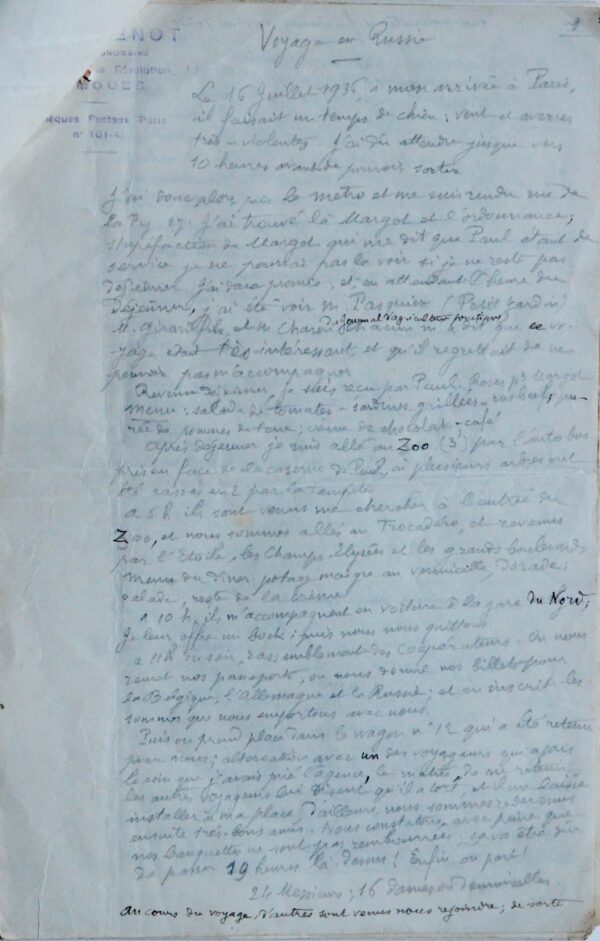 ENOT
HONORAIRE
Révolution
MOGES
Chèques Postaux Paris
n° 181-41
Voyage en Russie
Le 16 Juillet 1936, à mon arrivée à Paris,
il faisait un temps de chien ; vent et averses
très violentes. J'ai dû attendre jusque vers
10 heures avant de pouvoir sortir
J'ai donc alors pris le métro et me suis rendu rue de
La Py, 27. J'ai trouvé là Margot et l'ordonnance ;
Stupéfaction de Margot qui me dit que Paul étant de
service je ne pourrai pas le voir si je ne reste pas
déjeuner. J'ai donc promis ; et, en attendant l'heure du
déjeuner, j'ai été voir M. Pasquier (Petit Jardin)
M. Girard fils, et M. Charon (du journal d'agriculture pratique) chacun m'a dit que ce vo-
yage était très intéressant, et qu'il regrettait de ne
pouvoir pas m'accompagner
Revenu déjeuner, je suis reçu par Paul. Roses pr Margot
Menu : salade de tomates - sardines grillées - rosbeef, pu-
rée de pommes de terre ; crème de chocolat - café
Après déjeuner je suis allé au Zoo (3f) par l'autobus
pris en face de la caserne de Paul, où plusieurs arbres ont
été cassés en 2 par la tempête
à 5 h ils sont venus me chercher à l'entrée du
Zoo, et nous sommes allés au Trocadéro, et revenus
par l'Etoile, les Champs-Elysées et les grands boulevards
Menu du dîner, potage maigre au vermicelle Dorade,
salade, reste de la crème
à 10 h, ils m'accompagnent en voiture à la gare du Nord ;
Je leur offre un bock ; puis nous nous quittons
à 11 h du soir, rassemblement des Coopérateurs. On nous
remet nos passeports, on nous donne nos billets pour
la Belgique, l'Allemagne et la Russie ; et on inscrit les
sommes que nous emportons avec nous.
Puis on prend place dans le wagon n° 12 qui a été retenu
pour nous ; altercation avec un des voyageurs qui a pris
le coin que j'avais prié l'agence, le matin, de me retenir,
les autres voyageurs lui disent qu'il a tort, et il me laisse
installer à ma place, d'ailleurs nous sommes redevenus
ensuite très bons amis. Nous constatons avec peine que
nos banquettes ne sont pas rembourrées, ça va être dur
de passer 19 heures là dessus ! Enfin on part !
24 Messieurs ; 16 dames ou demoiselles
Au cours du voyage, d'autres sont venus nous rejoindre ; de sorte